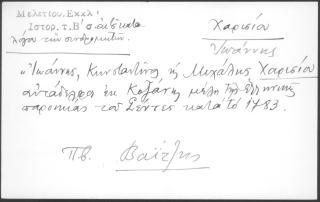 Μελετίου. Εκκλ.
Ιστορ. τ. Β' σ.
λόγο των συνδρομητών.
Χαρισίου
Ιωάννης
"Ιωάννης, Κωνσταντίνος, ή Μιχάλης Χαρισίου
αυτάδελφοι εκ Κοζάνης μέλη της ελληνικής
παροικίας του Σέντες κατά το 1783.
Π.β. Βαΐτζης